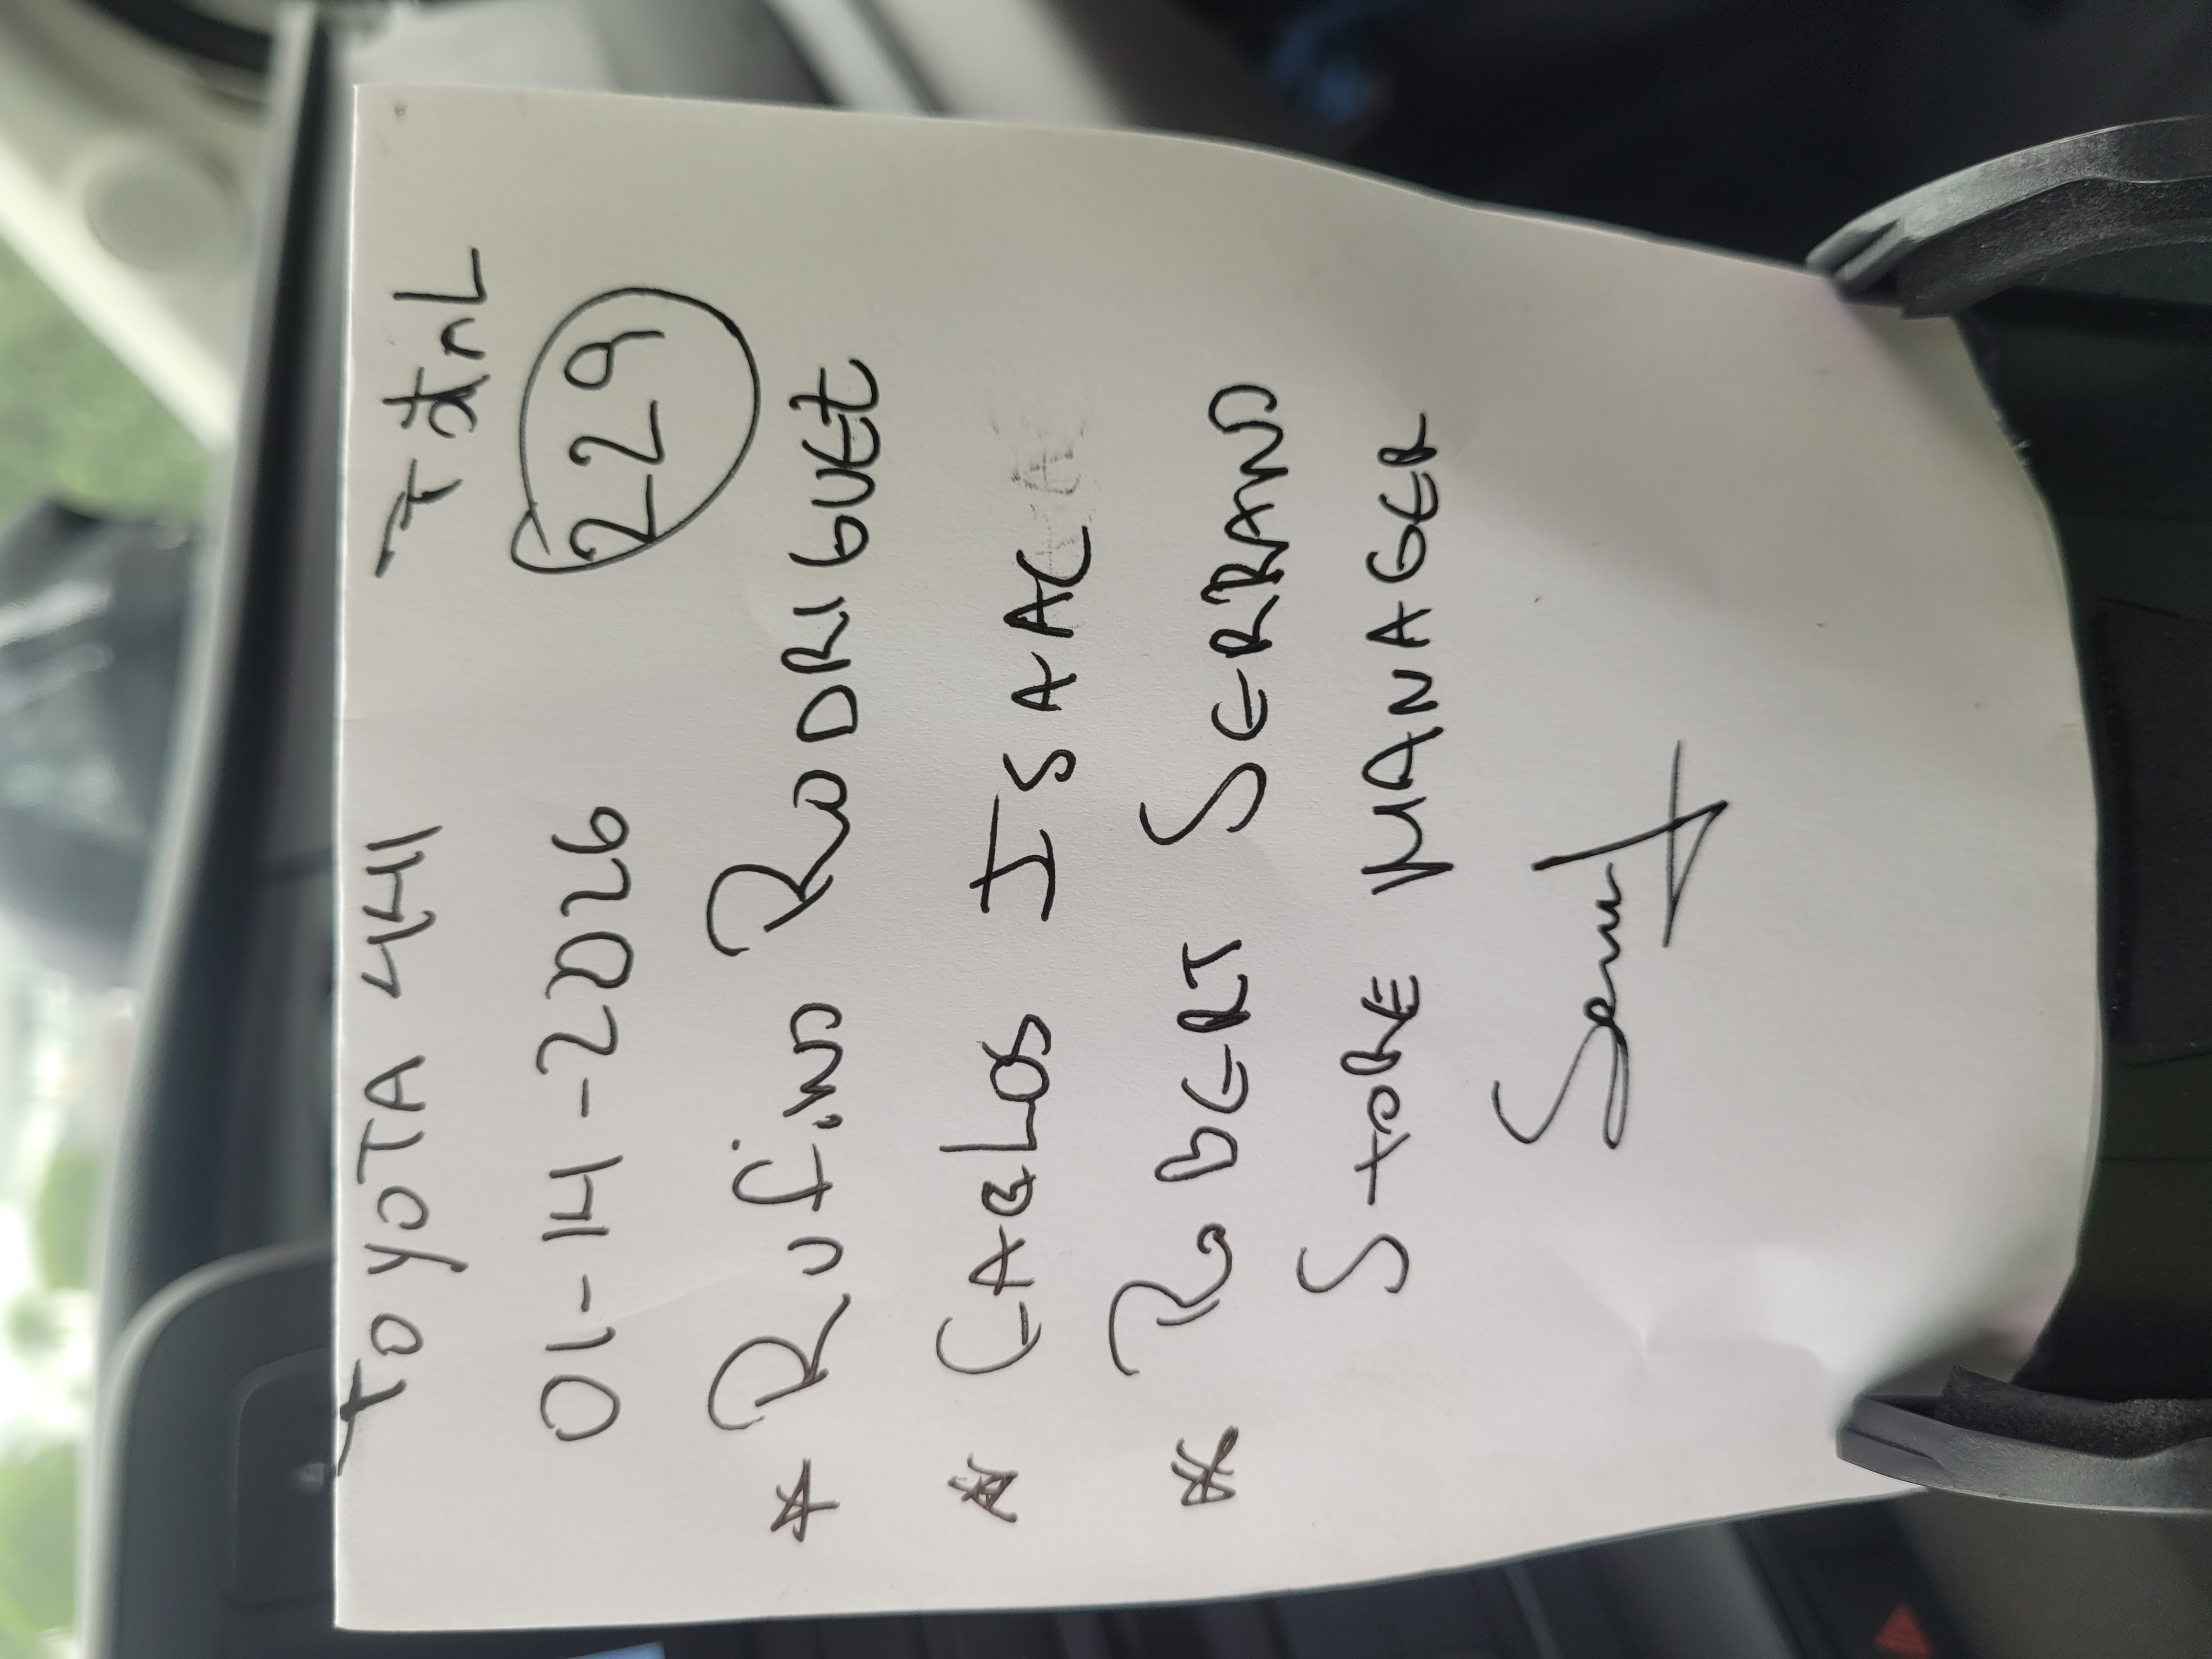 TOYOTA 441
01-14-2026
229
Rufino RODRIGUEZ
CARLOS ISAAC
ROBERT SERRANO
STORE MANAGER